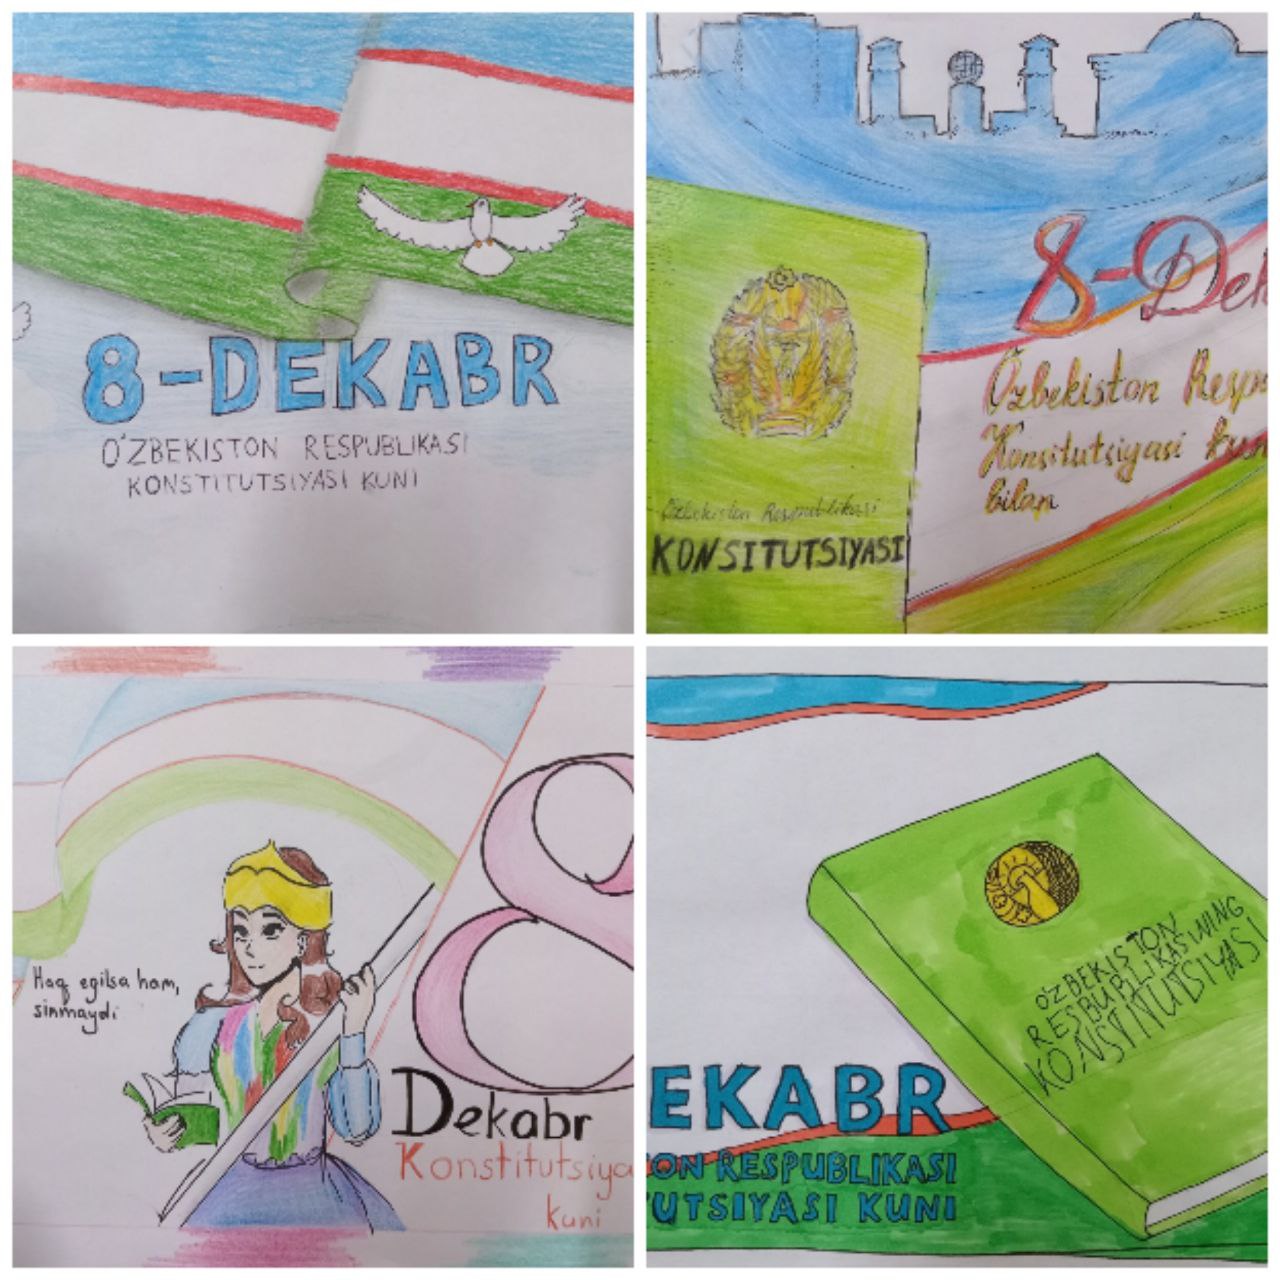 8-DEKABR
O'ZBEKISTON RESPUBLIKASI
KONSTITUTSIYASI KUNI
8-Dek
O'zbekiston Resp
Konsitutsiyasi kun
bilan
O'zbekiston Respublikasi
KONSITUTSIYASI
Haq egilsa ham,
sinmaydi
8
Dekabr
Konstitutsiya
kuni
O'ZBEKISTON
RESBUBLIKASWING
KONSTITUTSIYASI
EKABR
ON RESPUBLIKASI
UTSIYASI KUNI